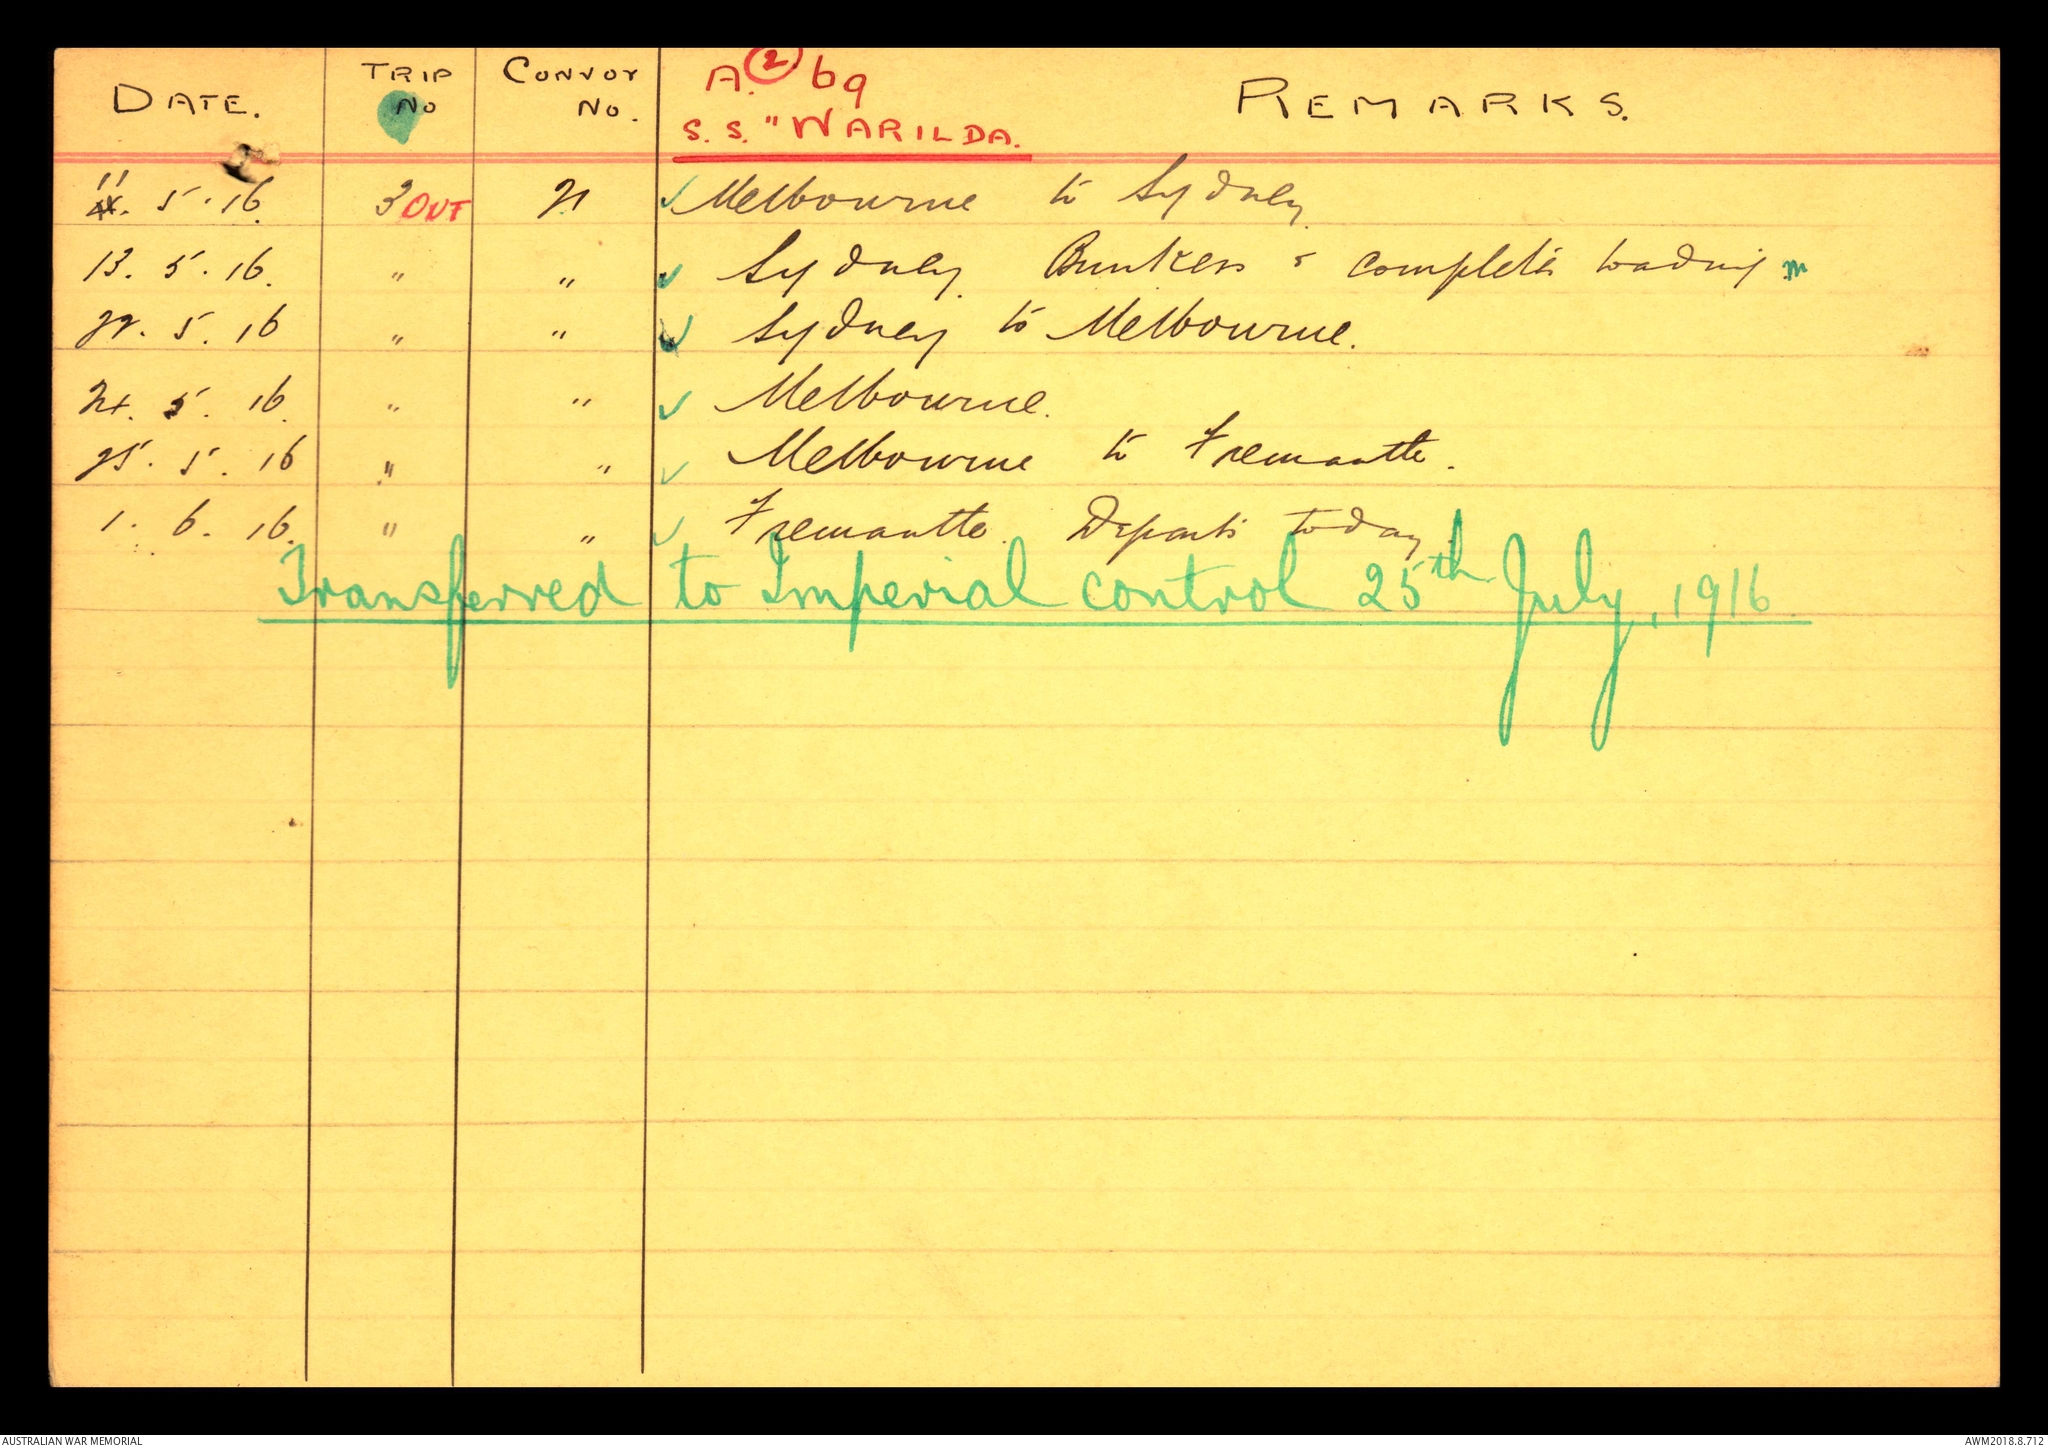 DATE. TRIP NO CONVOY NO. A.② 69 S.S. "WARILDA. REMARKS.
11. 5. 16. 3 OUT 21 ✓ Melbourne to Sydney.
13. 5. 16. " " ✓ Sydney. Bunkers & completes loading
22. 5. 16 " " ✓ Sydney to Melbourne.
24. 5. 16. " " ✓ Melbourne.
25. 5. 16 " " ✓ Melbourne to Fremantle.
1. 6. 16. " " ✓ Fremantle. Departs today.
Transferred to Imperial control 25th July, 1916
AUSTRALIAN WAR MEMORIAL AWM2018.8.712